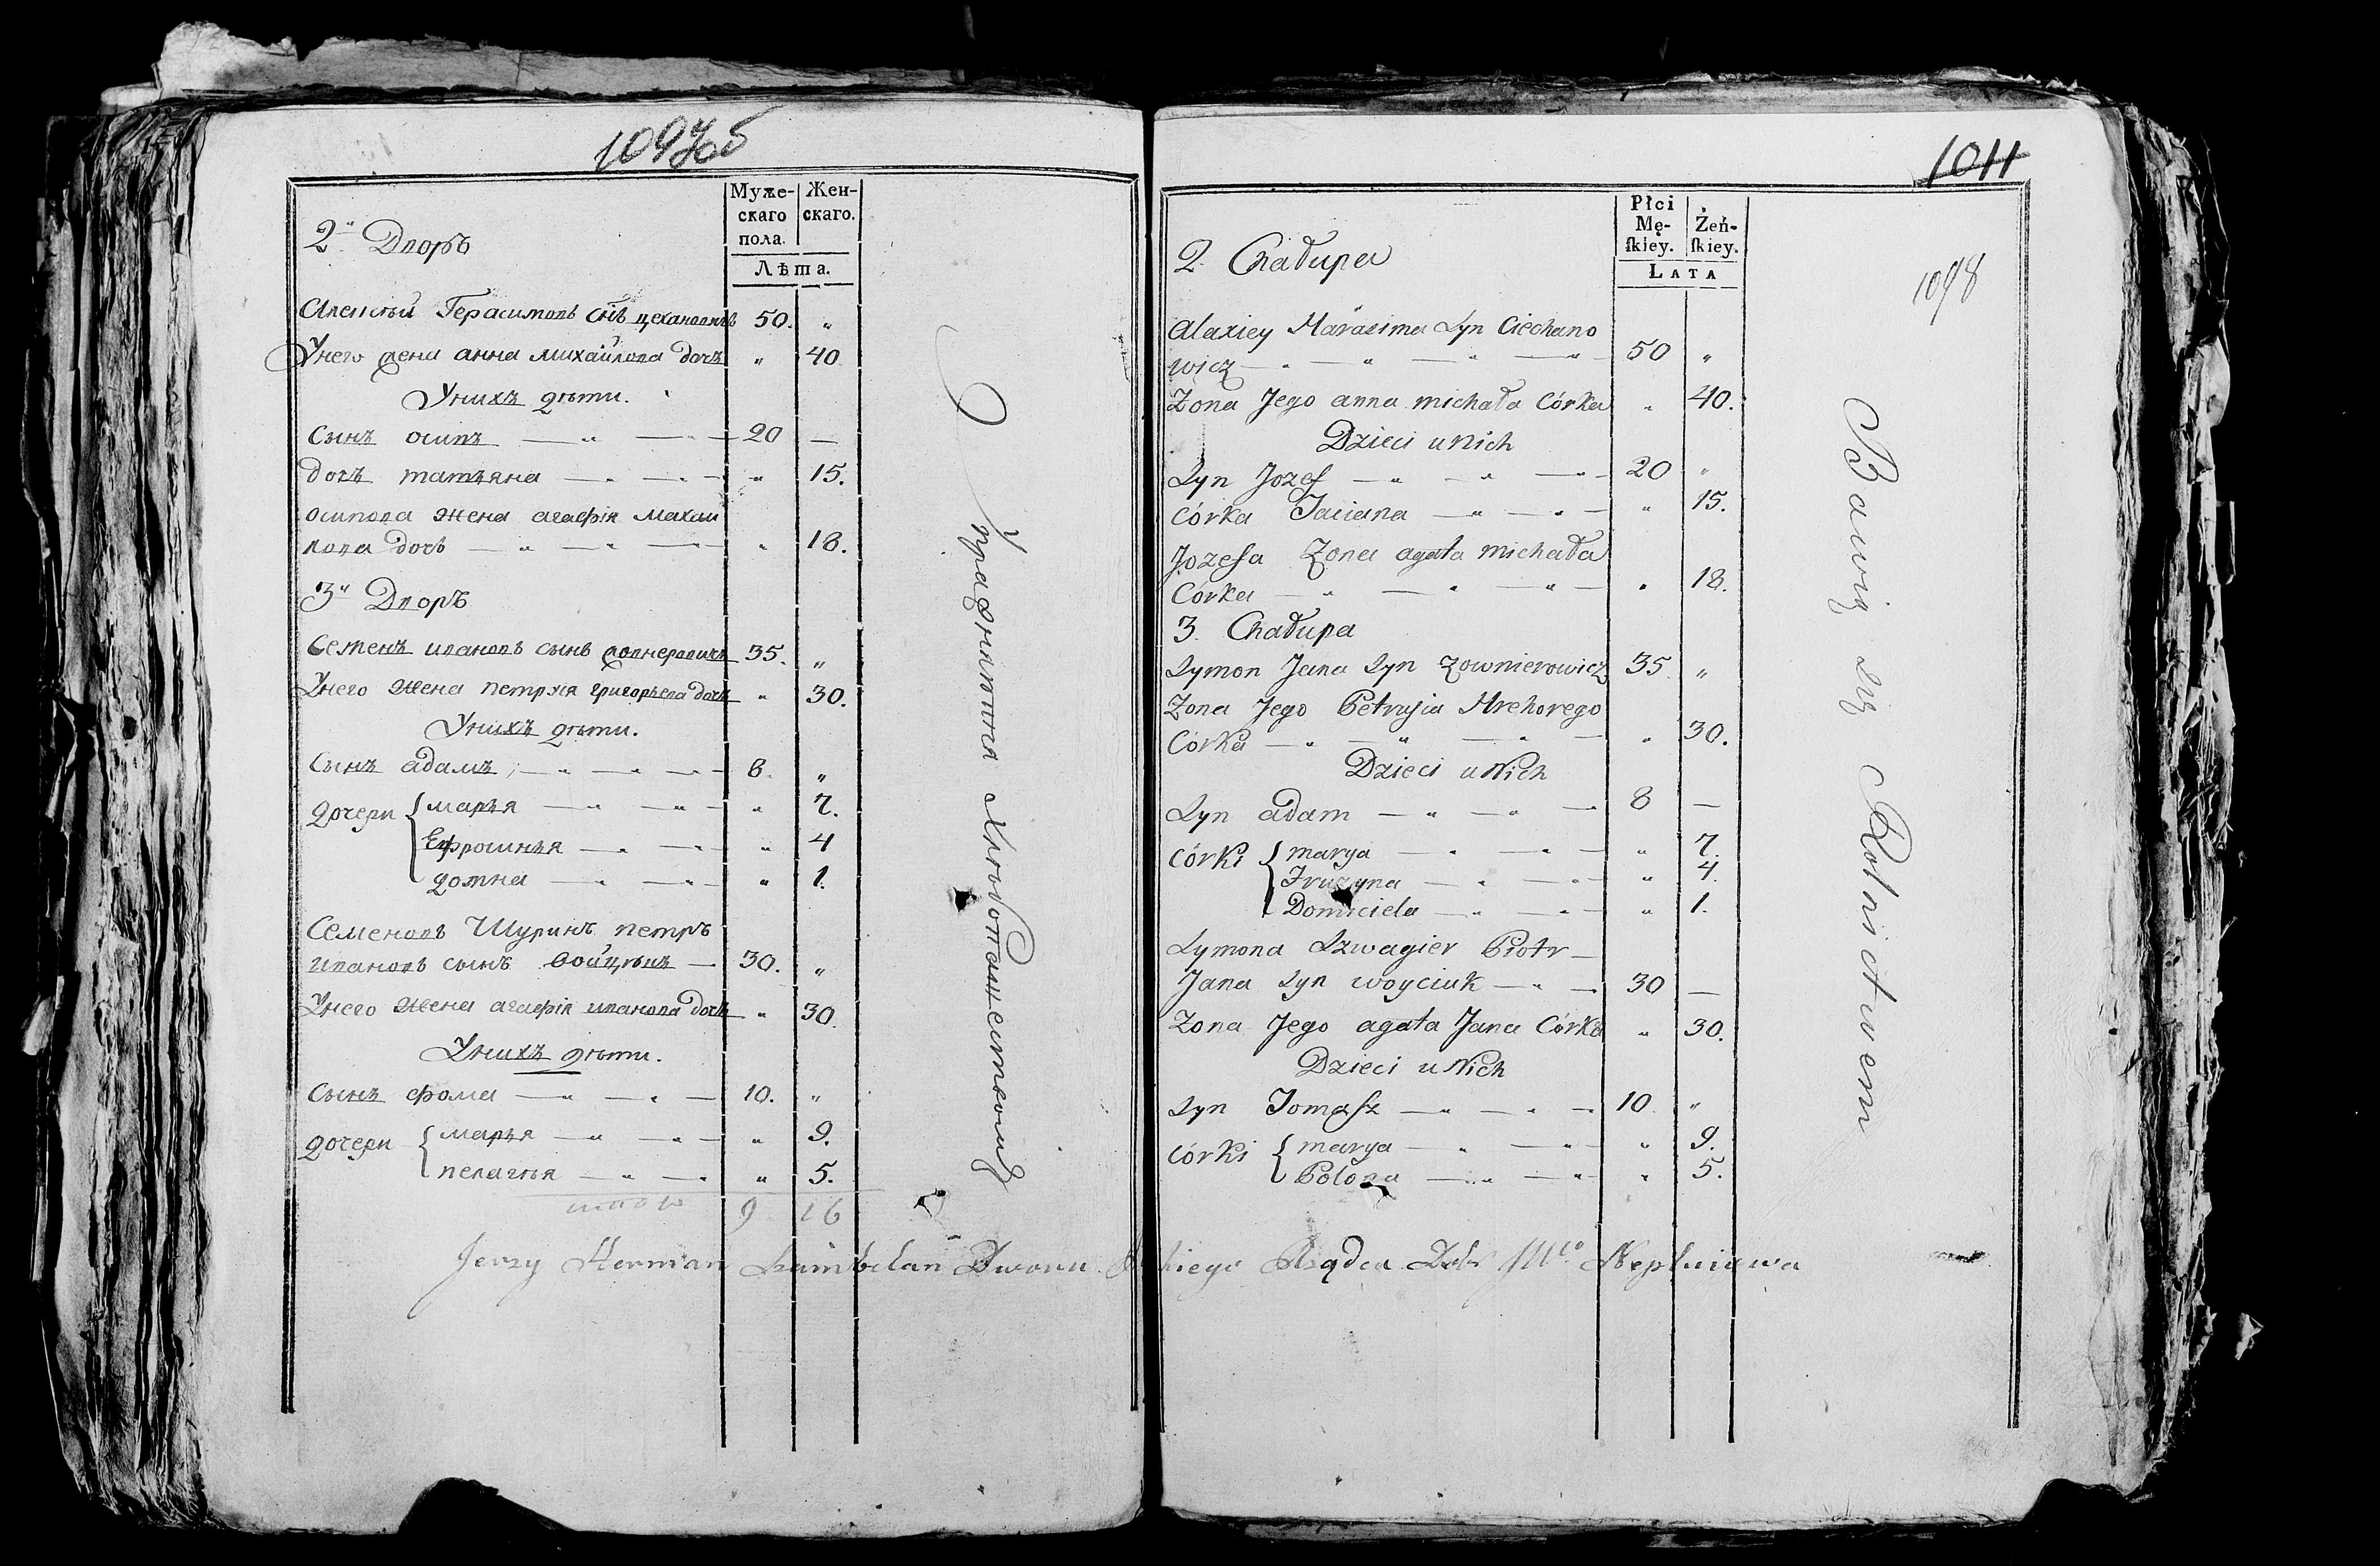 1097об
Муже- Жен-
скаго скаго.
пола.
Лѣта.
2й Дворъ
Алексѣй Герасимовъ снъ цехановичъ 50. „
Унего жена анна михайлова дочь „ 40
Унихъ дѣти.
Сынъ осипъ — „ — 20 —
дочь татьяна — „ — „ 15.
осипова жена агафія михаи
лова дочь — „ — „ — „ 18.
3й Дворъ
Семенъ ивановъ сынъ жовнеровичъ 35. „
Унего жена петруся григорьева дочь „ 30.
Унихъ дѣти.
Сынъ адамъ — „ — „ — 8. „
дочери { марья — „ — „ — „ 7.
Ефросинья — „ — „ 4
домна — „ — „ — „ 1.
Семеновъ Шуринъ петръ
ивановъ сынъ войцюкъ — 30. „
Унего жена агафія иванова дочь „ 30
Унихъ дѣти.
Сынъ фома — „ — „ — 10. „
дочери { марья — „ — „ — „ 9.
пелагѣя — „ — „ „ 5.
итого 9 16
Упражняются хлѣбопашествомъ
1011
1098
Płci Żeń-
Mę- ſkiey.
ſkiey.
LATA
2. Chałupa
Alaxiey Harasima Syn Ciechano
wicz — „ — „ — „ — 50 „
Zona Jego anna michała Córka „ 40.
Dzieci u Nich
Syn Jozef — „ — „ — „ — 20 „
Córka Taciana — „ — „ — „ 15.
Jozefa Zona agata michała
Córka — „ — „ „ — „ 18.
3. Chałupa
Symon Jana Syn Zownierowicz 35 „
Zona Jego Petrusia Hrehorego
Córka — „ — „ — „ — „ 30.
Dzieci u Nich
Syn adam — „ — „ — 8 —
Córki { marya — „ — „ — „ 7.
Fruzyna — „ — „ — „ 4.
Domiciela — „ — „ — „ 1.
Symona Szwagier Piotr —
Jana Syn woyciuk — „ — 30 —
Zona Jego agata Jana Córka „ 30.
Dzieci u Nich
Syn Tomaſz — „ — „ — 10 „
Córki { marya — „ — „ — „ 9.
Polonia — „ — „ — „ 5.
Bawią się Rolnictwem
Jerzy Herman Szambelan Dworu Rządca Dobr